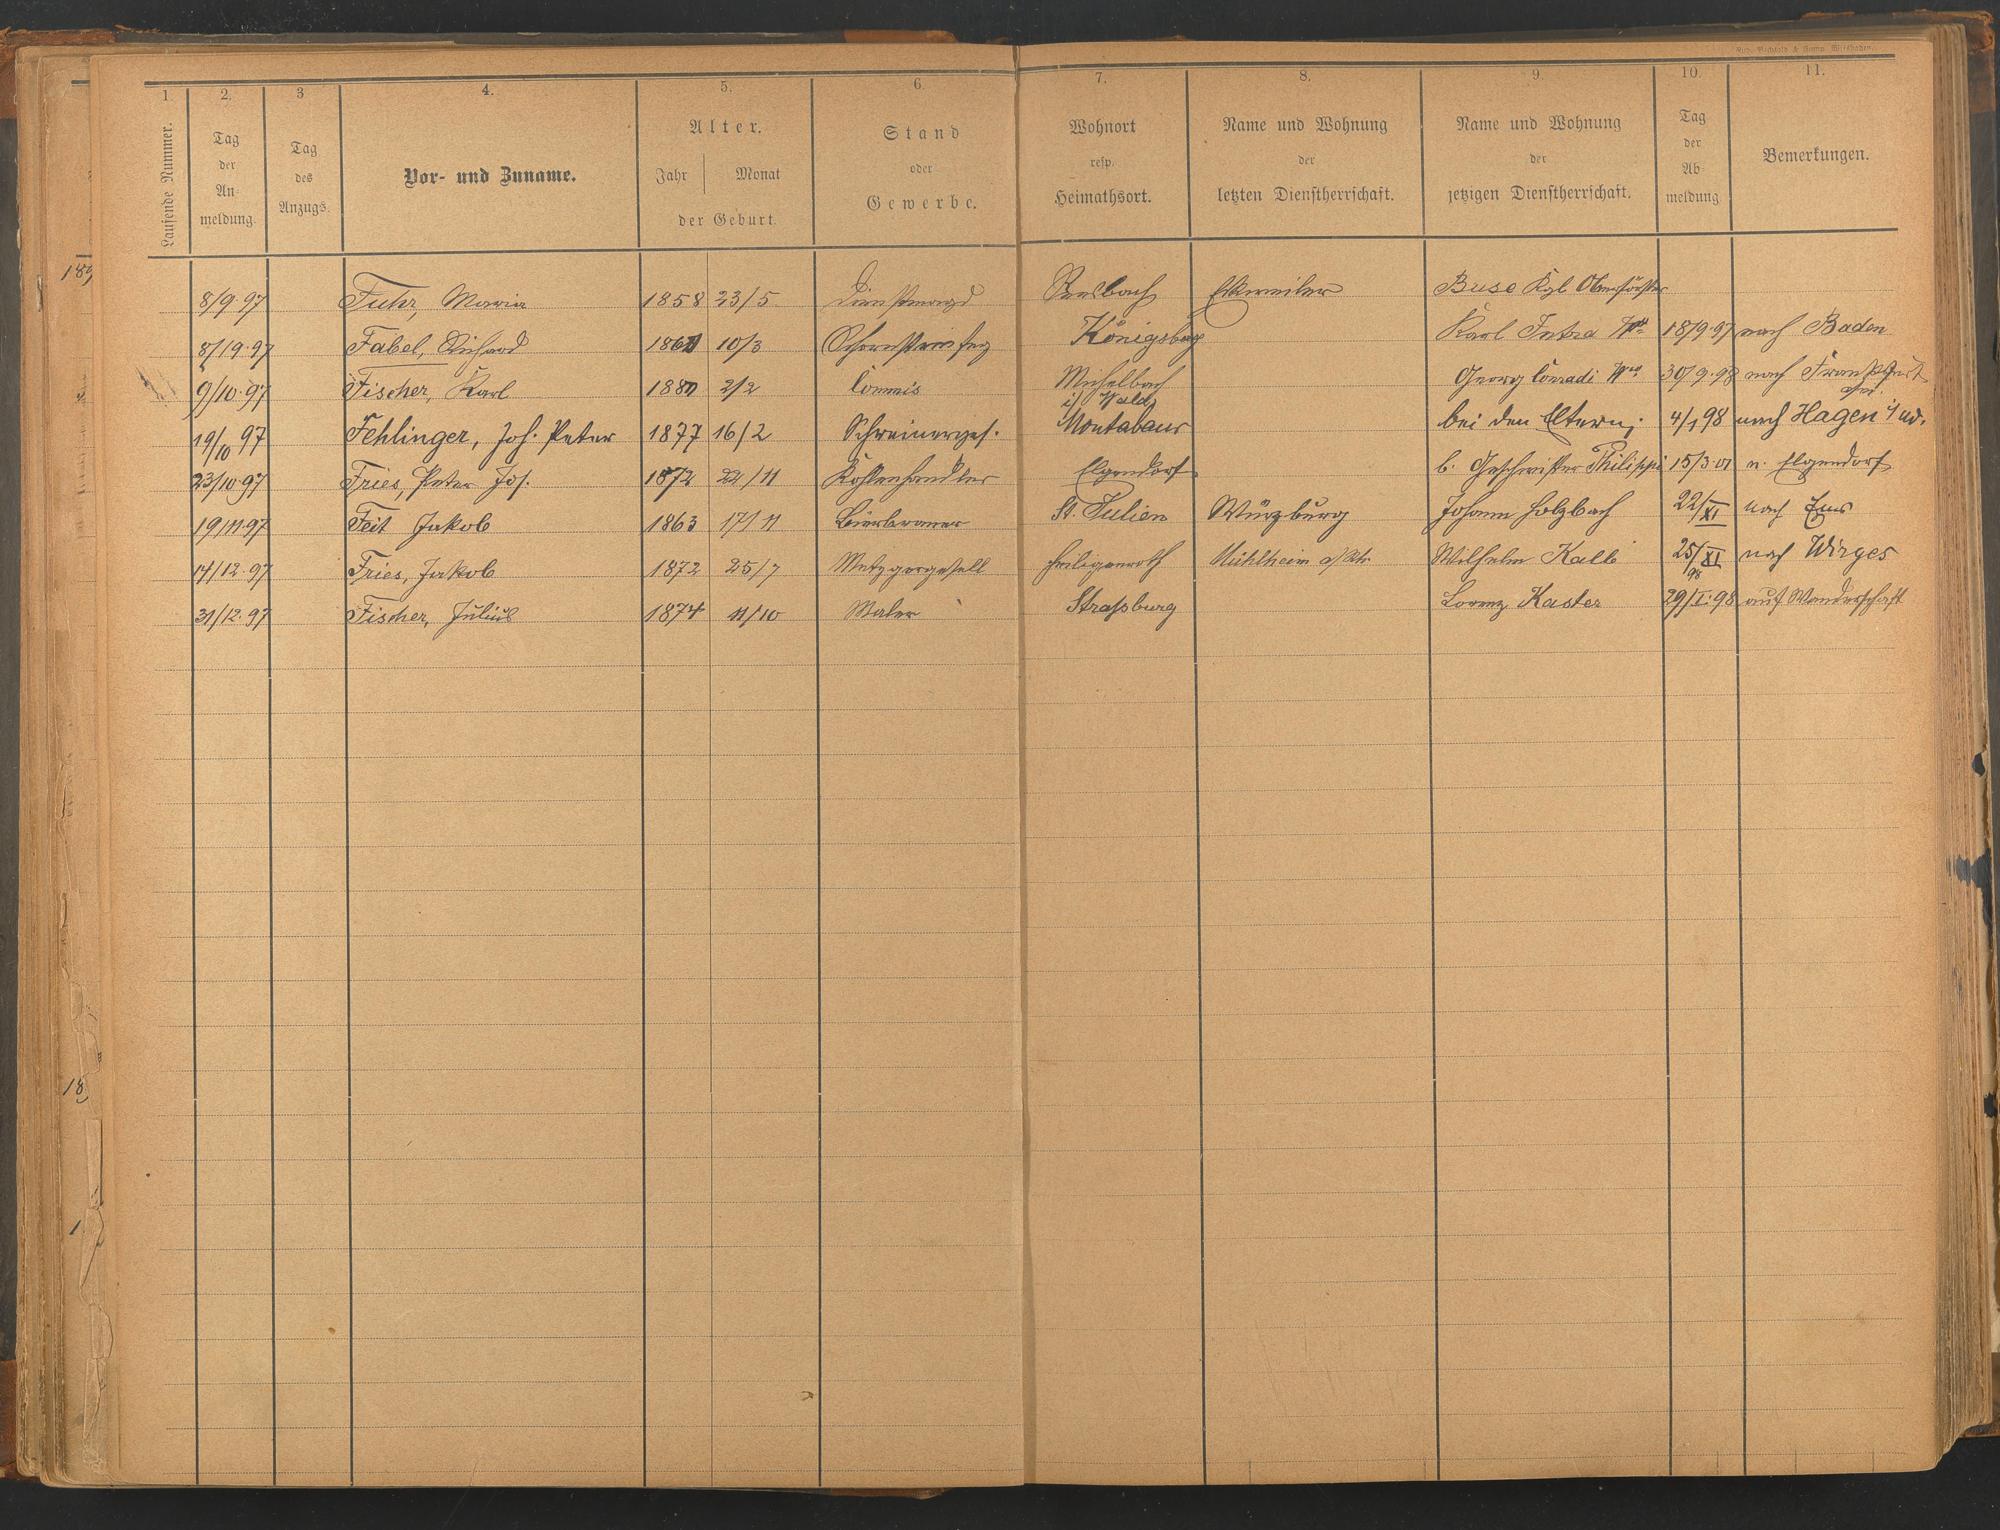 1. 2. 3 4. 5. 6. 7. 8. 9. 10. 11.
Laufende Nummer.
Tag der An- meldung.
Tag des Anzugs.
Vor- und Zuname.
Alter.
Jahr | Monat
der Geburt.
Stand oder Gewerbe.
Wohnort resp. Heimathsort.
Name und Wohnung der letzten Dienstherrschaft.
Name und Wohnung der jetzigen Dienstherrschaft.
Tag der Ab meldung
Bemerkungen.
8/9 97 Fuhr, Maria 1858 23/5 Dienstmagd Seesbach Eckweiler Buse Kgl Oberförster
8/19.97 Fabel, Richard 186 10/3 Schornsteinfeg Königsberg Karl Intra Wwe 18/9.97 nach Baden
9/10.97 Fischer, Karl 188 2/2 Commis Michelbach i/ Wald Georg Conradi Wwe 30/9.98 nach Frankfurt
19/10 97 Fehlinger, Joh. Peter 1877 16/2 Schreinerges. Montabaur bei den Eltern; 4/1 98 nach Hagen i/W.
23/10.97 Fries, Peter Jos. 1872 22/11 Kohlenhändler Elgendorf b. Geschwister Philippi 15/3 01 n. Elgendorf
19/11.97 Feit Jakob 1863 17/11 Bierbrauer St. Julien Würzburg Johann Holzbach 22/XI nach Ems
14/12.97 Fries, Jakob 1872 25/7 Metzgergesell Heiligenroth Mühlheim a/Rh Wilhelm Kalb 25/XI 98 nach Wirges
31/12.97 Fischer, Julius 1874 11/10 Maler Strassburg Lorenz Kaster 29/I.98 auf Wanderschaft